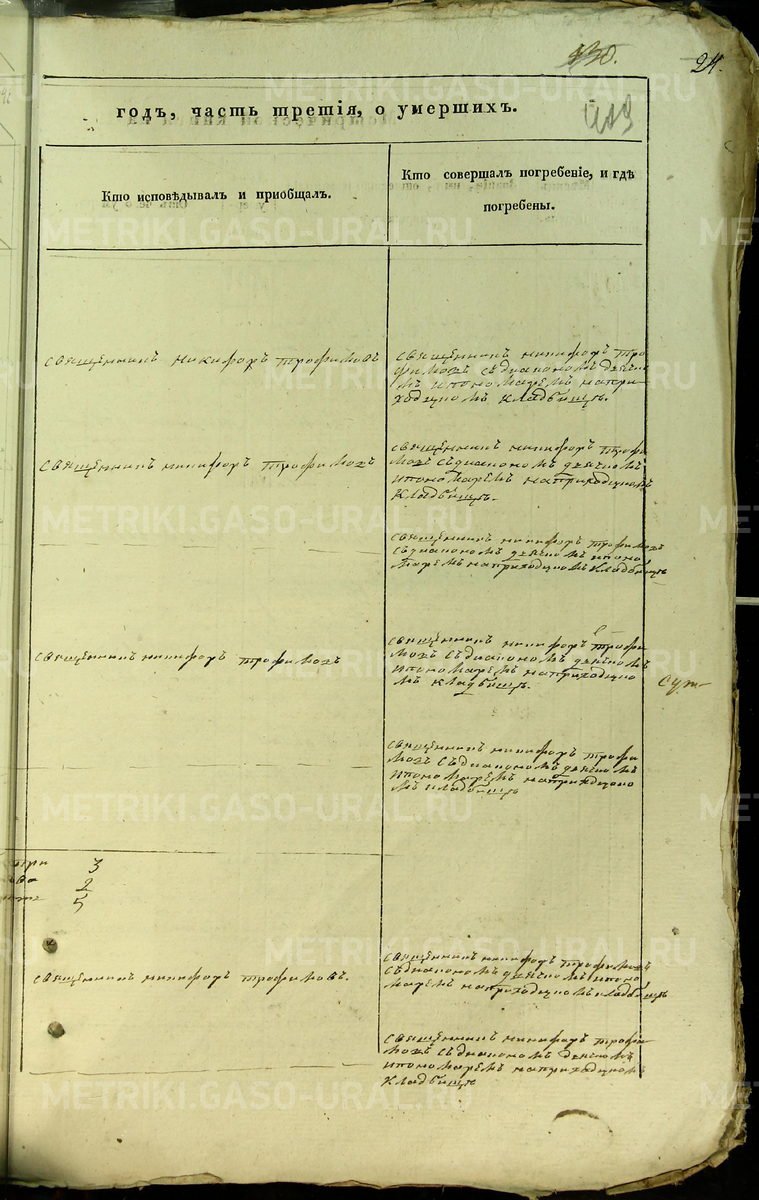 130.
24.
годъ, часть третія, о умершихъ.
Кто исповѣдывалъ и пріобщалъ.
Кто совершалъ погребеніе, и гдѣ
погребены.
священникъ никифоръ трофимовъ
священникъ никифоръ тро
фимовъ съдиакономъ дьячко
мъ ипономаремъ напри
ходцкомъ кладбищѣ.
священникъ никифоръ трофимовъ
священникъ никифоръ трофи
мовъ съдиакономъ дьячкомъ
ипономаремъ наприходцкомъ
кладбищѣ.
священникъ никифоръ трофимовъ
съдиакономъ дьячкомъ ипоно
маремъ наприходцкомъ кладбищѣ
священникъ никифоръ трофимовъ
священникъ никифоръ трофи
мовъ съдиакономъ дьячкомъ
ипономаремъ наприходцко
мъ кладбищѣ.
священникъ никифоръ трофи
мовъ съдиакономъ дьячкомъ
ипономаремъ наприходцко
мъ кладбищѣ
три 3
два 2
5
священникъ никифоръ трофимовъ.
священникъ никифоръ трофимовъ
съдиакономъ дьячкомъ ипоно
маремъ наприходцкомъ кладбищѣ
священникъ никифоръ трофи
мовъ съдиакономъ дьячкомъ
ипономаремъ наприходцкомъ
кладбищѣ
METRIKI.GASO-URAL.RU